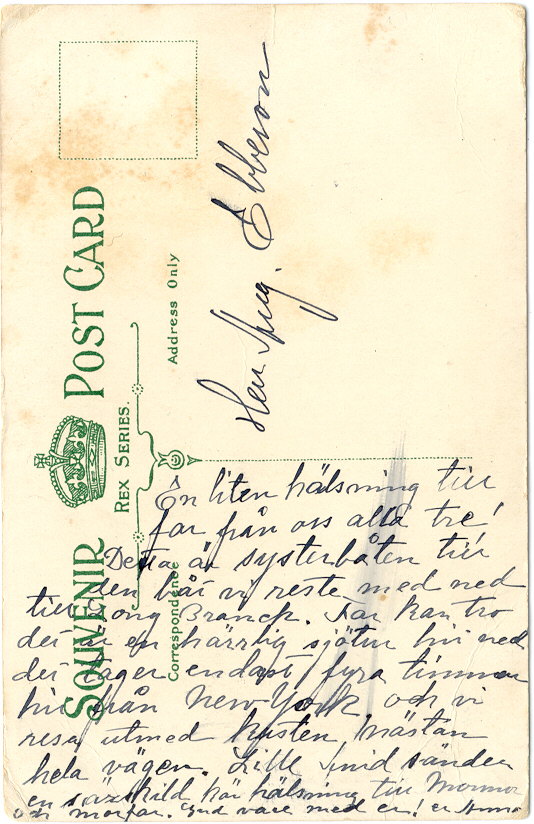 SOUVENIR POST CARD
REX SERIES.
Correspondence
Address Only
Herr Ebberson
En liten hälsning till
far från oss alla tre!
Detta är systerbåten till
den båt vi reste med ned
till Long Branch. Far kan tro
det är en härrlig sjötur hit ned
det tager endast fyra timmar
hit från New York, och vi
resa utmed kusten nästan
hela vägen. Lille sänder
en särskild kär hälsning till Mormor
och morfar. Gud vare med er! er